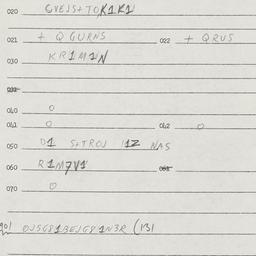 020 GVEJS+TOK1R1
021 + QGURNS 022 + QRUS
030 KR1M1N
040 0
041 0 042 0
050 D1 S+TROJ 11Z NAS
060 R1M7V1 061
070 0
901 OJSG81BEJG81N3R (131